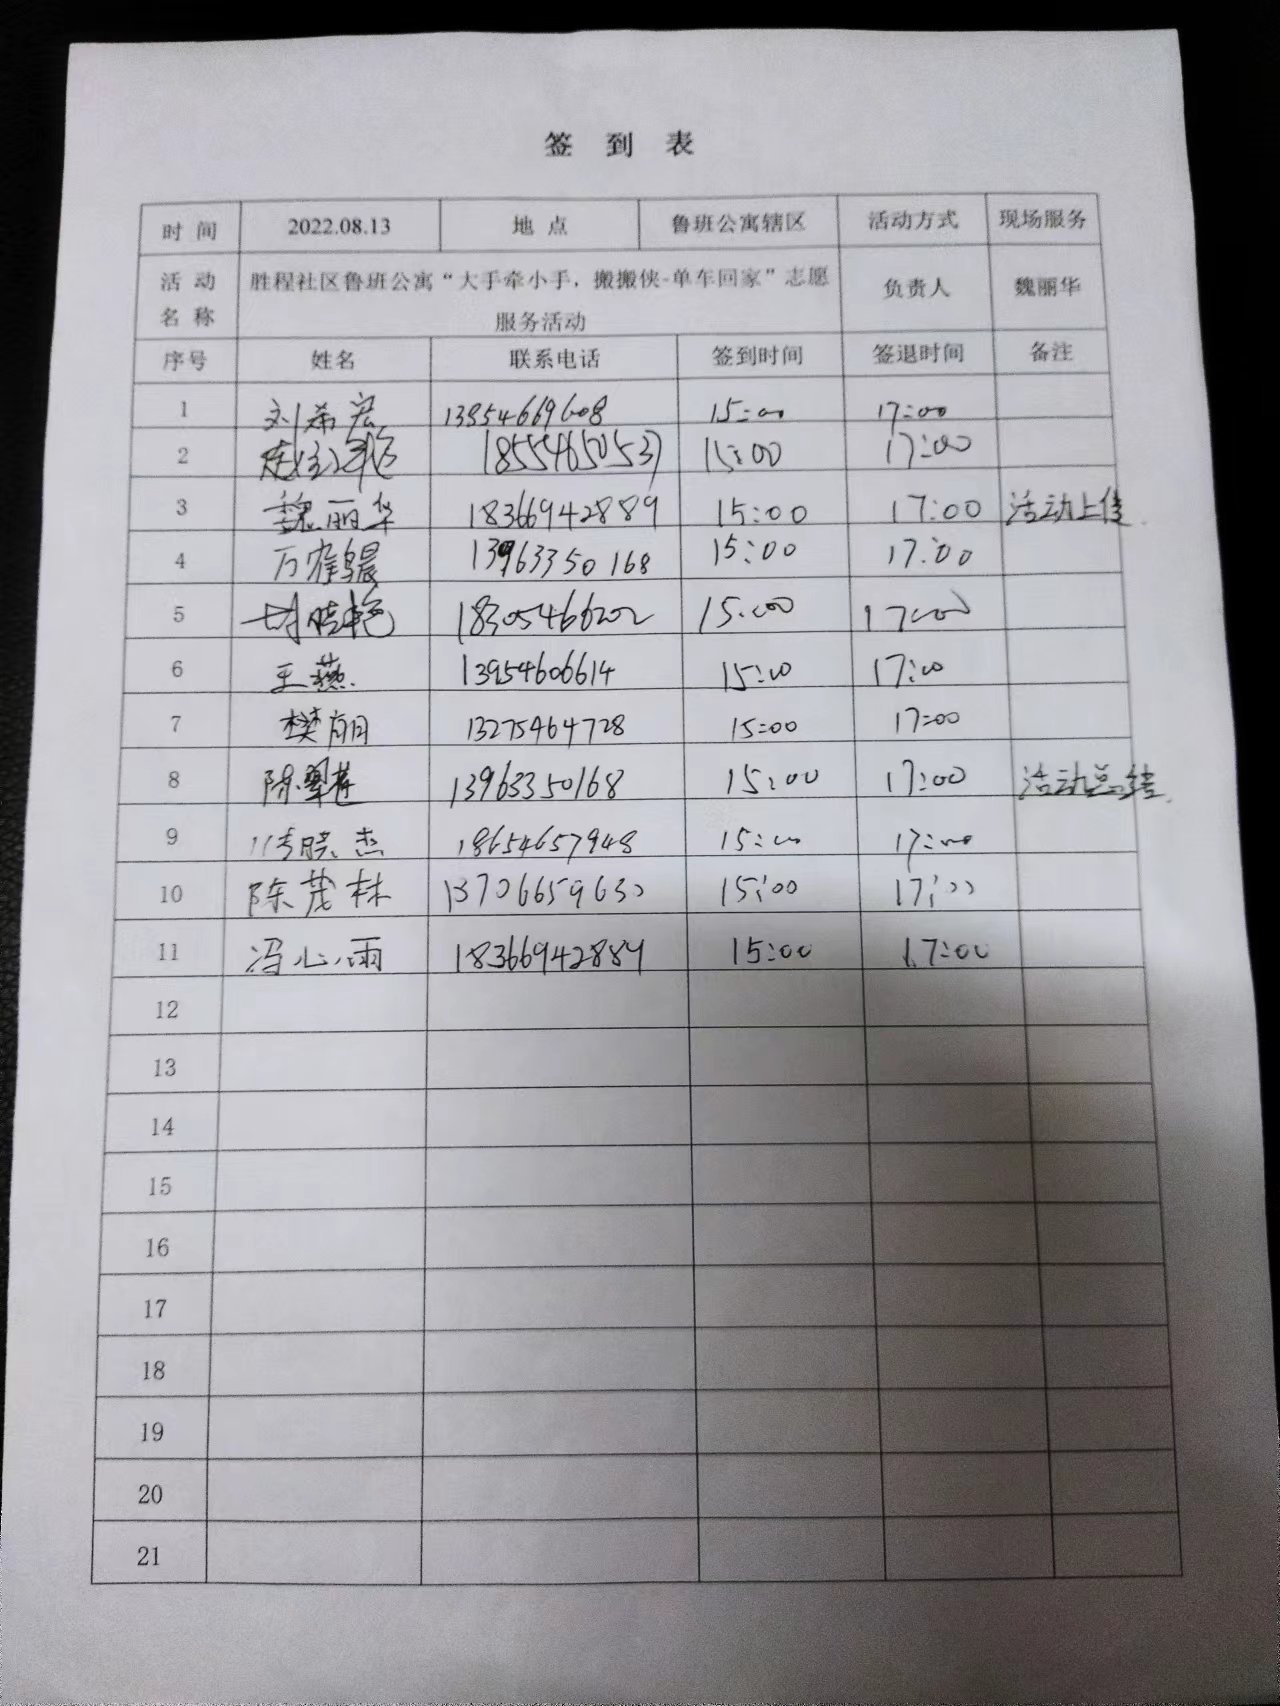 签 到 表
时 间 2022.08.13 地 点 鲁班公寓辖区 活动方式 现场服务
活 动 名 称 胜程社区鲁班公寓“大手牵小手，搬搬侠-单车回家”志愿 负责人 魏丽华
服务活动
序号 姓名 联系电话 签到时间 签退时间 备注
1 刘希宏 13854669608 15:00 17:00
2 18554650537 15:00 17:00
3 魏丽华 18366942889 15:00 17:00 活动上传
4 13963350168 15:00 17:00
5 胡晓艳 18305466202 15:00 17:00
6 王燕 13954606614 15:00 17:00
7 樊丽 13275464728 15:00 17:00
8 陈翠莲 13963350168 15:00 17:00 活动总结
9 18654657948 15:00 17:00
10 陈茂林 13706659630 15:00 17:00
11 冯心雨 18366942889 15:00 17:00
12
13
14
15
16
17
18
19
20
21